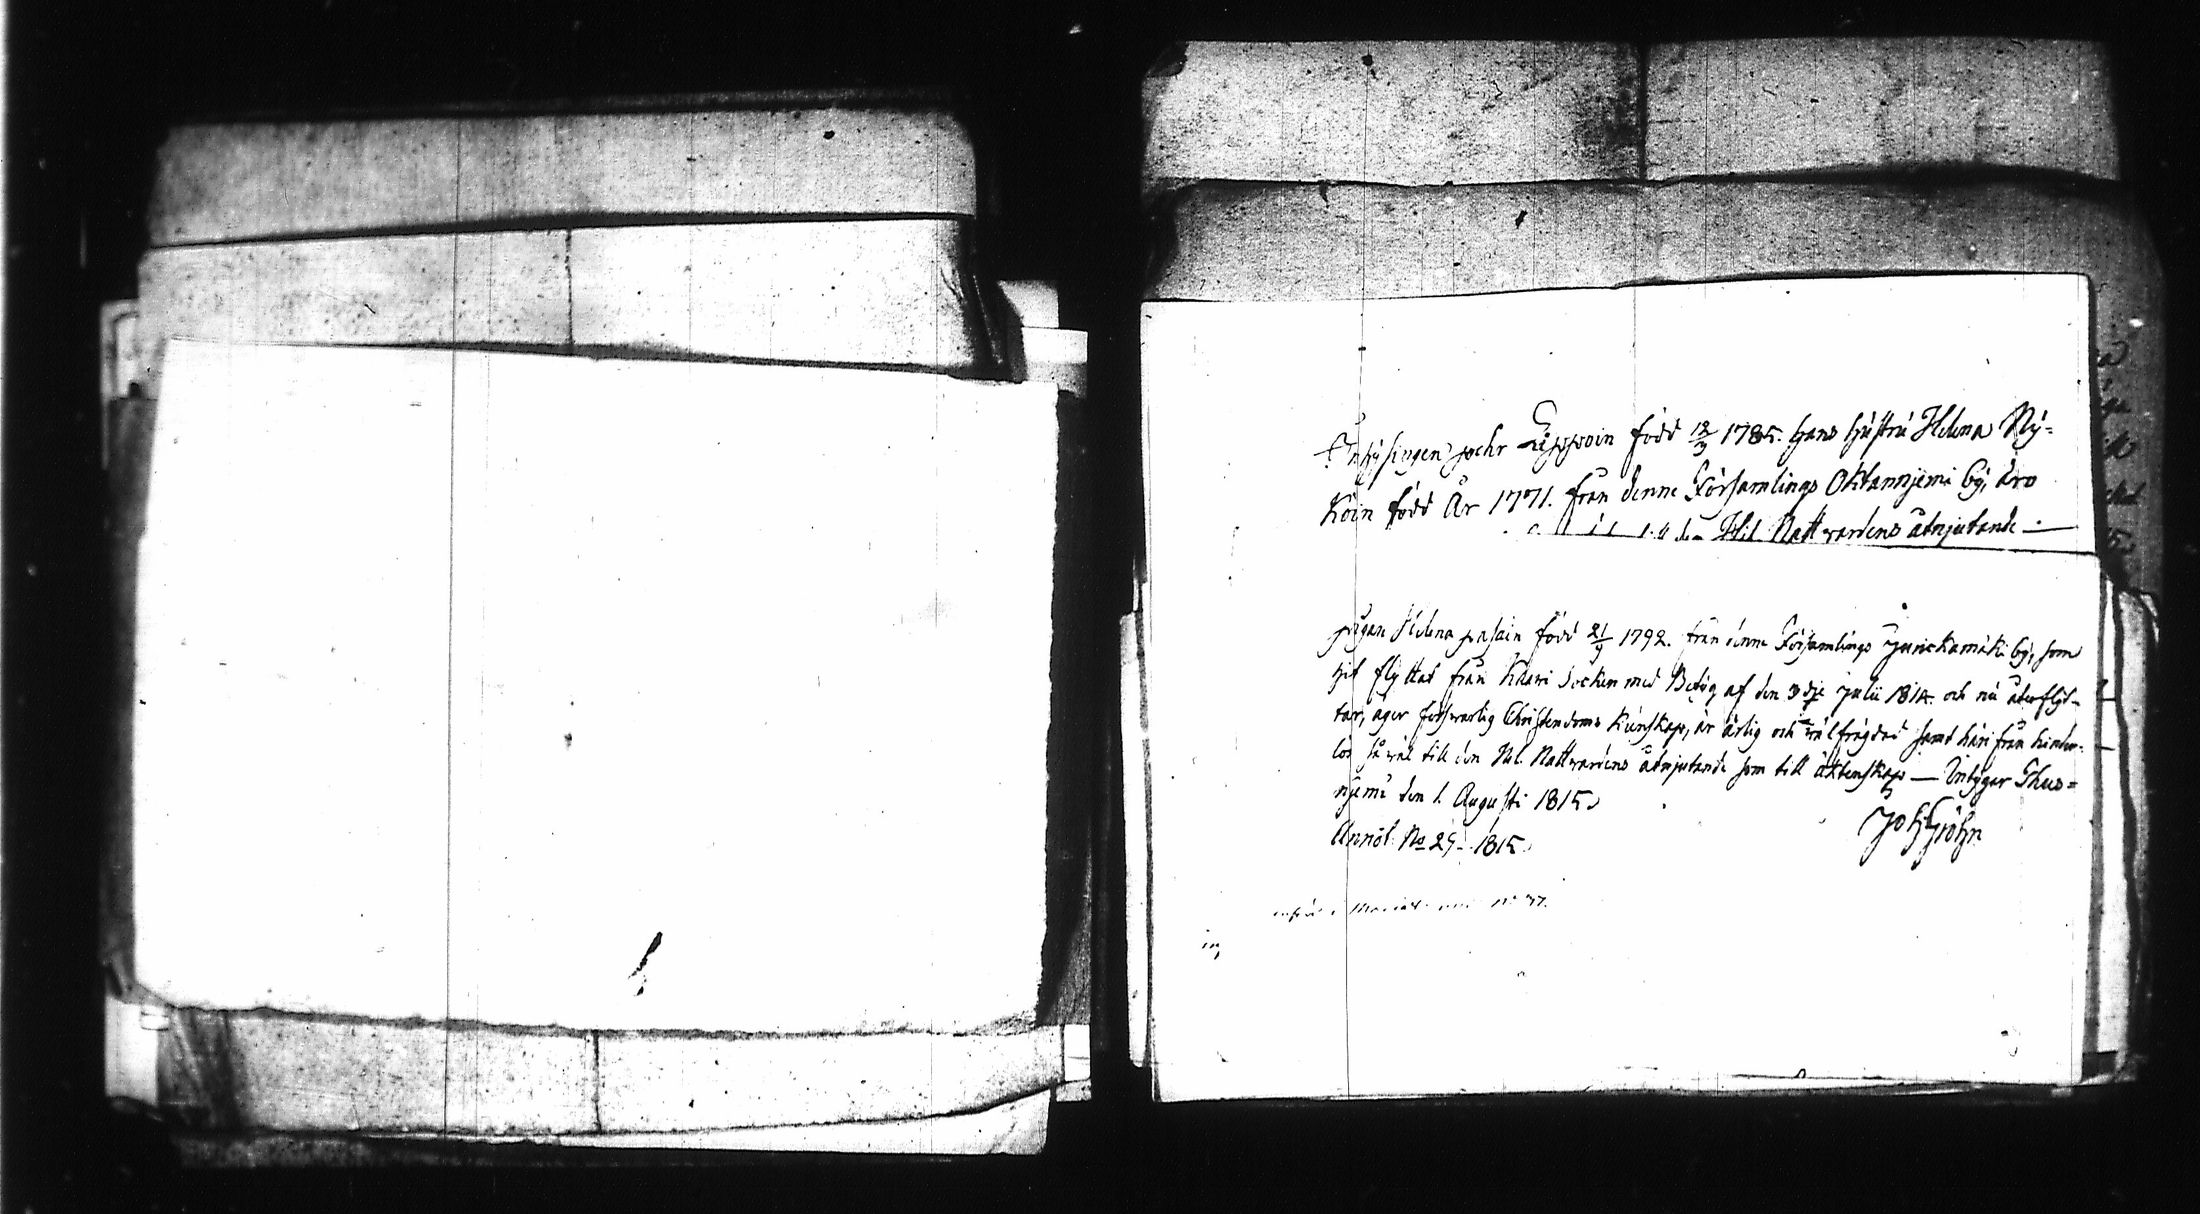 Inhysingen Pehr Lipponin född 12/3 1785. hans hustru Helena Ny-
köin född År 1771. från denne Församlings Oktanniemi by, äro
Nattvardens åtnjutande.—
pigan Helena född 21/9 1792. från denne Församlings Jurickamäki by, som
hit flyttat från Kaavi Socken med Betÿg af den 3dje Julii 1814. och nu återflÿt-
tar, äger försvarlig Christendoms Kunskap, är ärlig och välfrägdad samt häri från hinder-
lös så väl till den Nattvardens åtnjutande som till äktenskap — Intÿgar Thus-
niemi den 1. Augusti 1815.
Annot. No 29. 1815.
No 77.